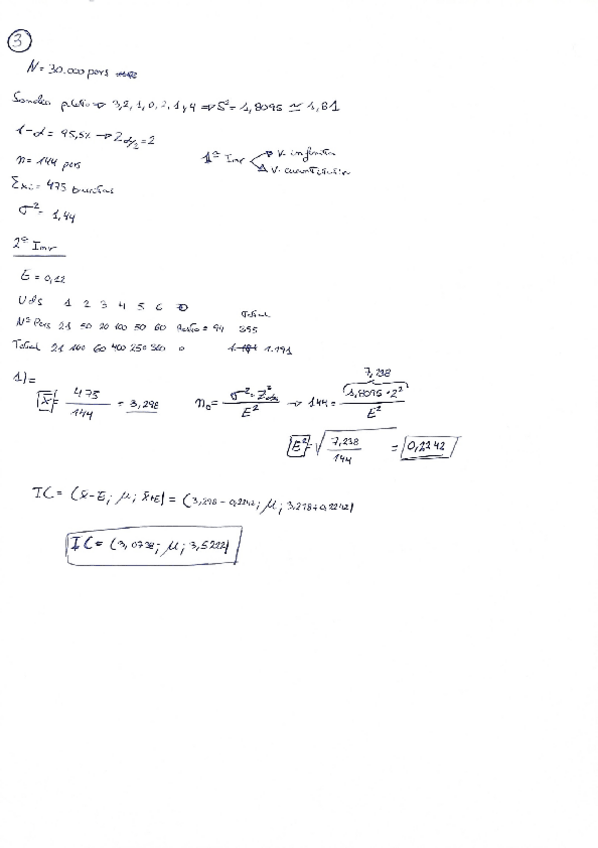 3
N = 30.000 pers
Sondeo piloto → 3, 2, 1, 0, 2, 1, 4 → S² = 1,8095 ≃ 1,81
1-α = 95,5% → Zα/2 = 2
n = 144 pers
1ª Inv → V. infinita
V. cuantitativa
Σxi = 475
σ² = 1,44
2ª Inv
E = 0,12
Uds 1 2 3 4 5 6 0 Total
Nº Pers 21 50 20 100 50 60 Resto = 94 395
Total 21 100 60 400 250 360 0 1.191
1) =
X̄ = 475 / 144 = 3,298
n₀ = σ² · Z²α/2 / E² → 144 = 1,8095 · 2² / E²
7,238
E² = √ 7,238 / 144 = 0,2242
IC = (x̄-E; μ; x̄+E) = (3,298 - 0,2242; μ; 3,298 + 0,2242)
IC = (3,0738; μ; 3,5222)